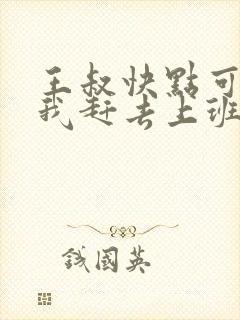 王叔快點可
我赶去上班
錢國英